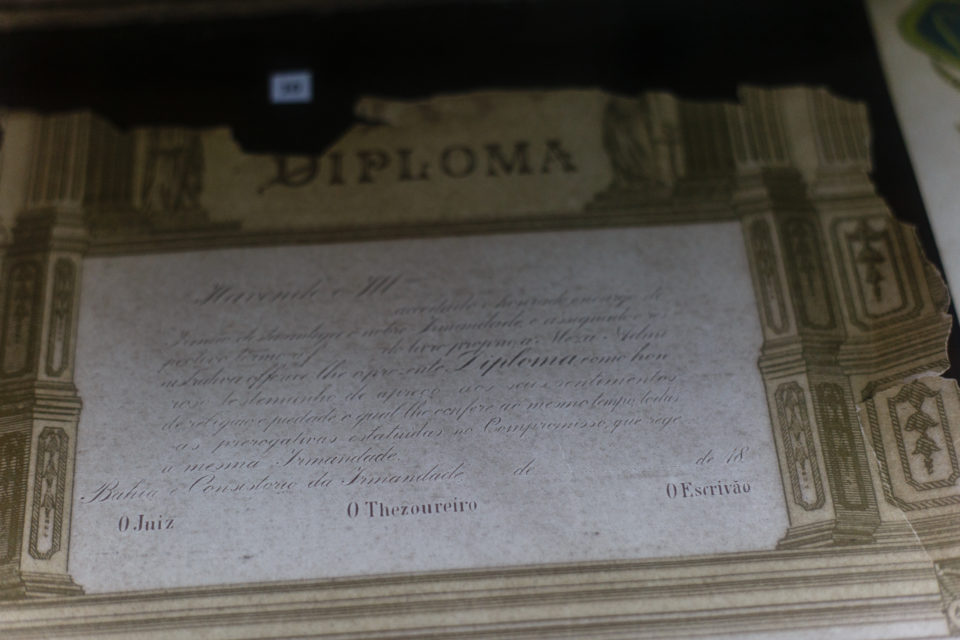 DIPLOMA
Havendo o Ill
acceitado o honrado encargo de
Irmão de nossa Irmandade e assignado o res
pectivo termo af do livro proprio, a Meza Admi
nistrativa offerece lhe o presente Diploma como hon
roso testemunho de apreço aos seus sentimentos
de religião e piedade o qual lhe confere ao mesmo tempo todas
as prerogativas estatuidas no Compromisso, que rege
a mesma Irmandade.
Bahia e Consistorio da Irmandade de de 18
O Juiz O Thezoureiro O Escrivão